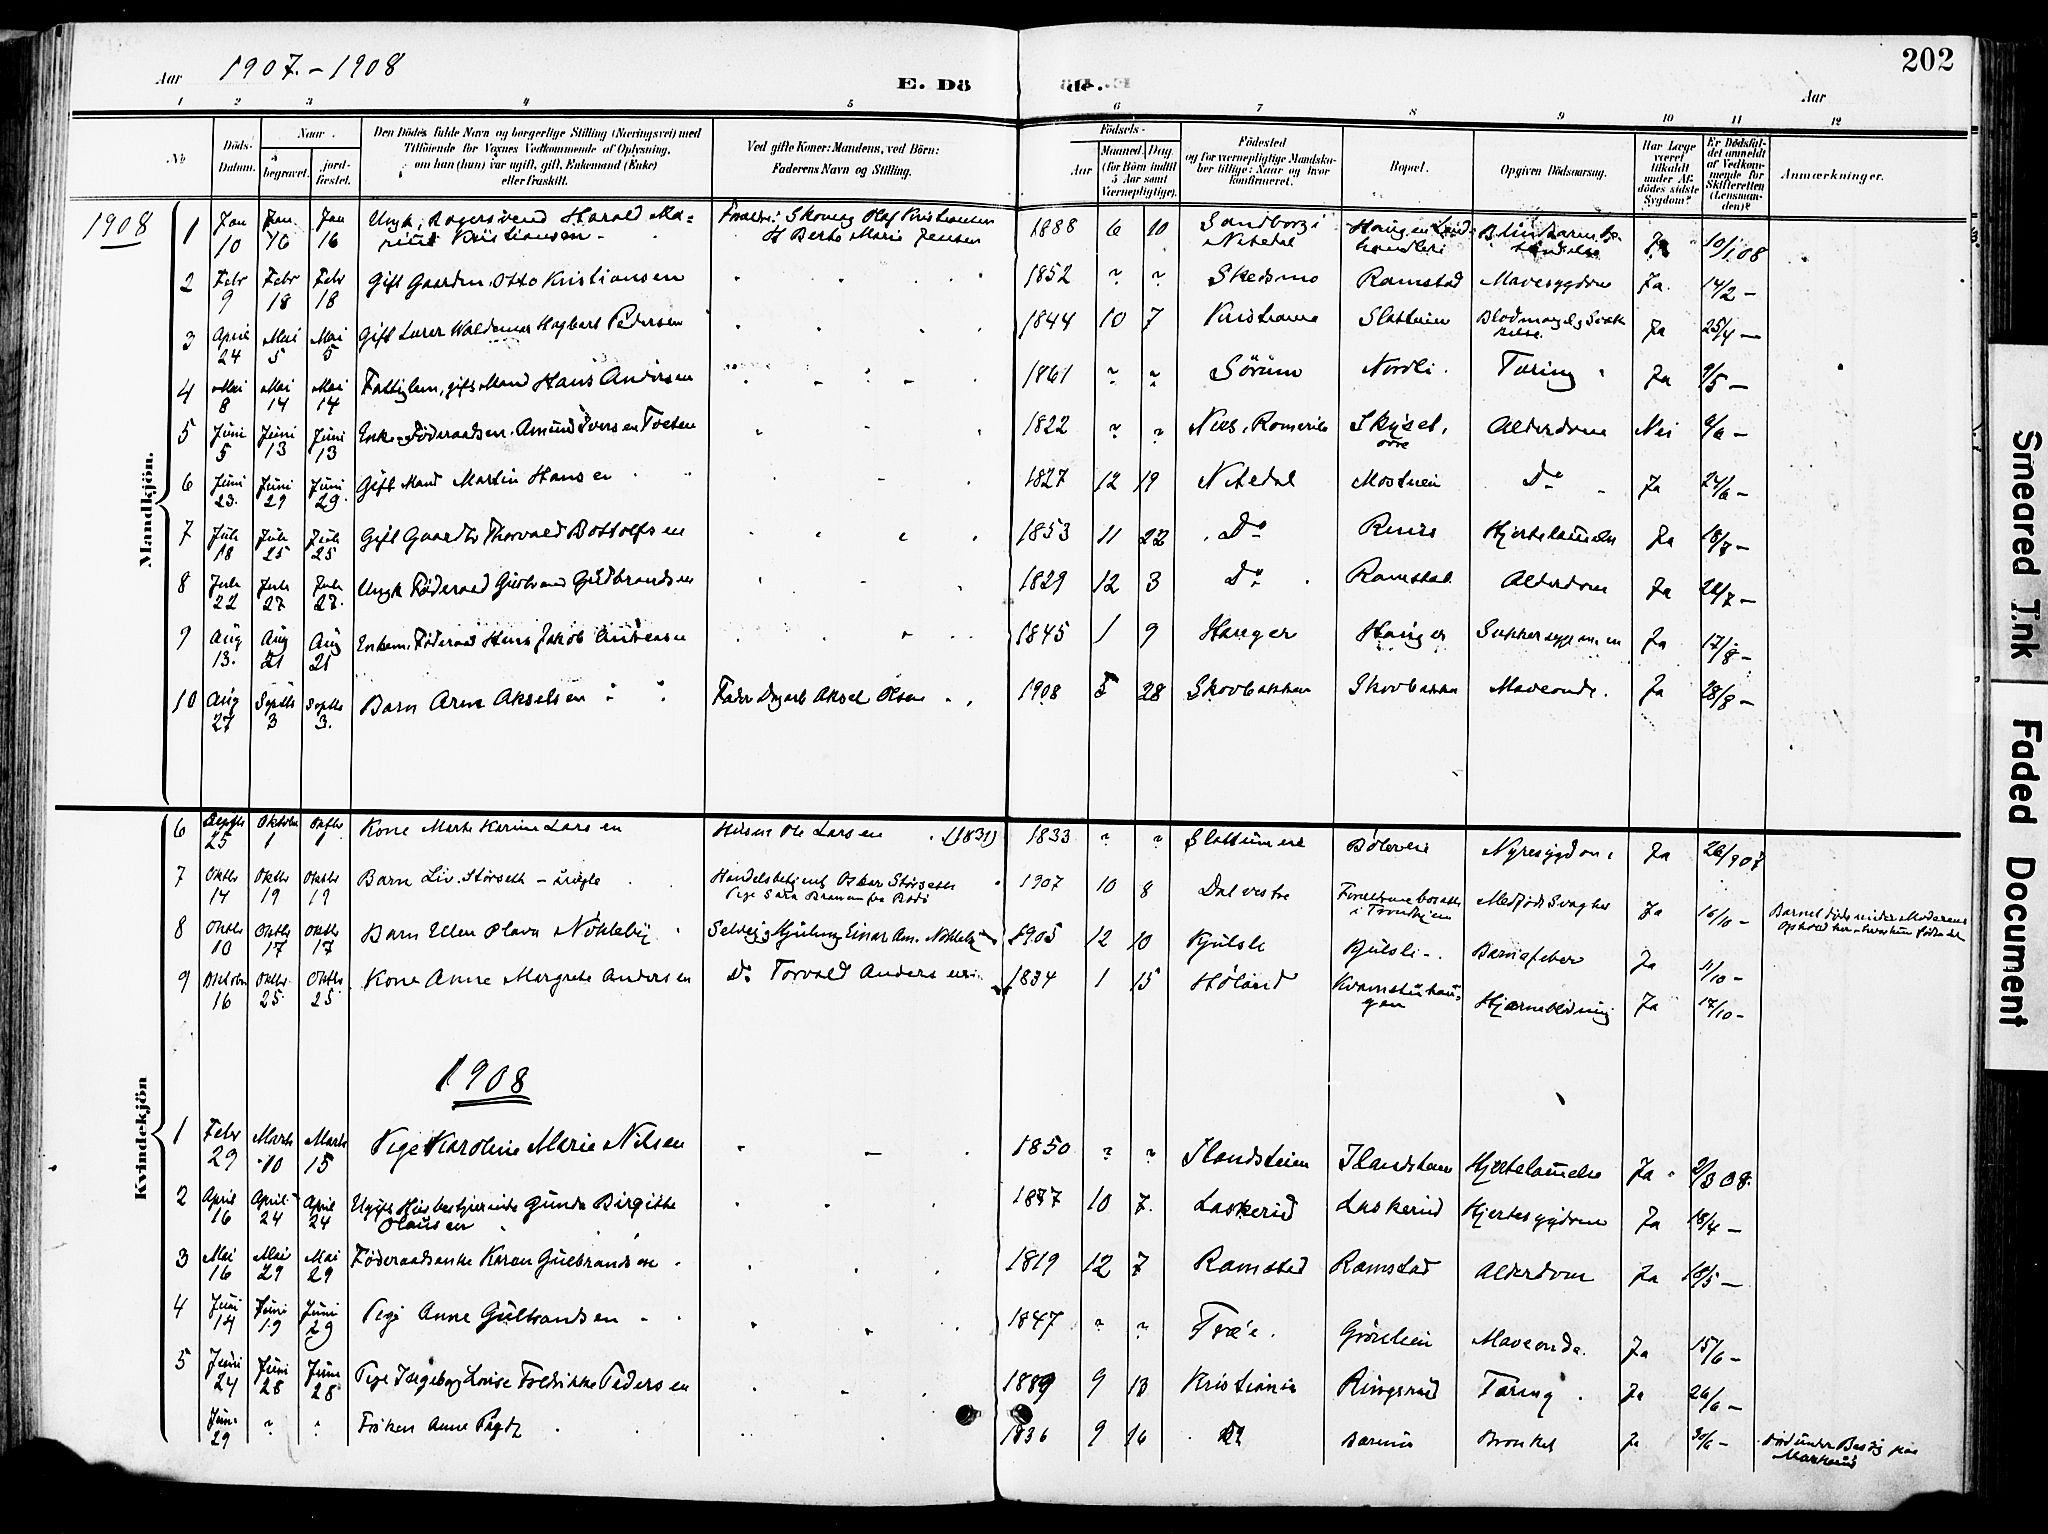 Aar 1907.-1908
E. Dö
de.
Aar
202
1 2 3 4 5 6 7 8 9 10 11 12
No
Döds-Datum.
Naar
begravet.
jordfæstet.
Den Dödes fulde Navn og borgerlige Stilling (Næringsvei) med
Tilföiende for Voxnes Vedkommende af Oplysning,
om han (hun) var ugift, gift, Enkemand (Enke)
eller fraskilt.
Ved gifte Koner: Mandens, ved Börn:
Faderens Navn og Stilling.
Födsels-
Aar
Maaned. Dag.
(for Börn indtil
5 Aar samt
Værnepligtige).
Födested
og for værnepligtige Mandskaber tillige: Naar og hvor
konfirmeret.
Bopæl.
Opgiven Dödsaarsag.
Har Læge
været
tilkaldt
under Afdödes sidste
Sygdom?
Er Dödsfaldet anmeldt
af Vedkommende for
Skifteretten
(Lensmanden)?
Anmærkninger.
Mandkjön.
1908
1 Jan 10 Jan 16 Jan 16 Ungk. Harald Marius Kristiansen Forældre: Skomag Olaf Kristiansen H Berte Marie Jensen 1888 6 10 Sandborg i Nitedal Haugen Ja 10/1 08
2 Febr 9 Febr 18 Febr 18 Gift Gaardm. Otto Kristiansen 1852 " " Skedsmo Ramstad Mavesygdom Ja. 14/2 -
3 April 24 Mai 5 Mai 5 Gift Lærer Waldemar Hagbart Pedersen 1844 10 7 Kristiania Slatteien Ja 25/4 -
4 Mai 8 Mai 14 Mai 14 Fattiglem, gift Mand Hans Andersen 1861 " " Sörum Nordli. Tæring Ja 9/5 -
5 Juni 5 Juni 13 Juni 13 Enkem. Föderaadsm. Amund Iversen 1822 " " Nes, Romerike Skyset, övre Alderdom Nei 6/6 -
6 Juni 23. Juni 29 Juni 29. Gift Mand Martin Hansen 1827 12 19 Nitedal Do Ja 24/6 -
7 Juli 18 Juli 25 Juli 25 Gift Gaardbr Thorvald Bottolfsen 1853 11 22 Do Hjertelammelse Ja 18/7 -
8 Juli 22 Juli 27 Juli 27. Ungk Föderaad Gudbrandsen 1829 12 3 Do Ramstad Alderdom Ja 22/7 -
9 Aug 13. Aug 21 Aug 21 Enkem. Föderaad Hans Jakob 1845 1 9 Hauger Hauger Sukkersygdommen Ja 17/8 -
10 Aug 27 Septb 3 Septb 3. Barn Arne Akselsen Fader Dagarb Aksel Olsen 1908 5 28 Skovbakken Skovbakken Maveonde. Ja 28/8 -
Kvindekjön
6 Septb 25 Oktober 1 Oktbr 1 Kone Marte Karine Larsen Ole Larsen (1831) 1833 " " Nyresygdom Ja 26/9 07
7 Oktbr 14 Oktbr 19 Oktbr 19 Barn Liv Störseth - uægte Handelsbetjent Oskar Störseth 1907 10 8 Dal vestre Forældrene bosatte i Trondhjem Medfödt Svaghed Ja 16/10 - Barnet döde under Moderens Ophold her
8 Oktbr 10 Oktbr 17 Oktbr 17 Barn Ellen Olava Nökleby Selveier Einar Am. Nökleby 1905 12 10 Kjulsli Kjulsli Ja 11/10 -
9 Oktober 16 Oktbr 25 Oktbr 25 Kone Anne Margrete Andersen Do Torvald Andersen 1834 1 15 Höland Hjerneblödning Ja 17/10 -
1908
1 Febr 29 Marts 10 Marts 15 Pige Karoline Marie Nilsen 1850 " " Hjertelammelse Ja 2/3 08.
2 April 16 April 24 April 24 Ugift Husbestyrerinde Gunda Birgitte Olausen 1877 10 7. Laskerud Laskerud Hjertesygdom Ja 18/4 -
3 Mai 16 Mai 29 Mai 29 Föderaadsenke Karen Gulbrandsen 1819 12 7 Ramstad Ramstad Alderdom Ja 18/5 -
4 Juni 14 Juni 19 Juni 29 Pige Anne Gulbrandsen 1847 " " Maveonde. Ja 15/6 -
5 Juni 24 Juni 28 Juni 28 Pige Ingeborg Lovise Fredrikke Pedersen 1889 9 13 Kristiania Ringerud Tæring. Ja 26/6 -
Juni 29 " " Fröken Anne 1836 9 16 Bærum Ja 30/6 - död under Besög paa
Smeared Ink
Faded Document